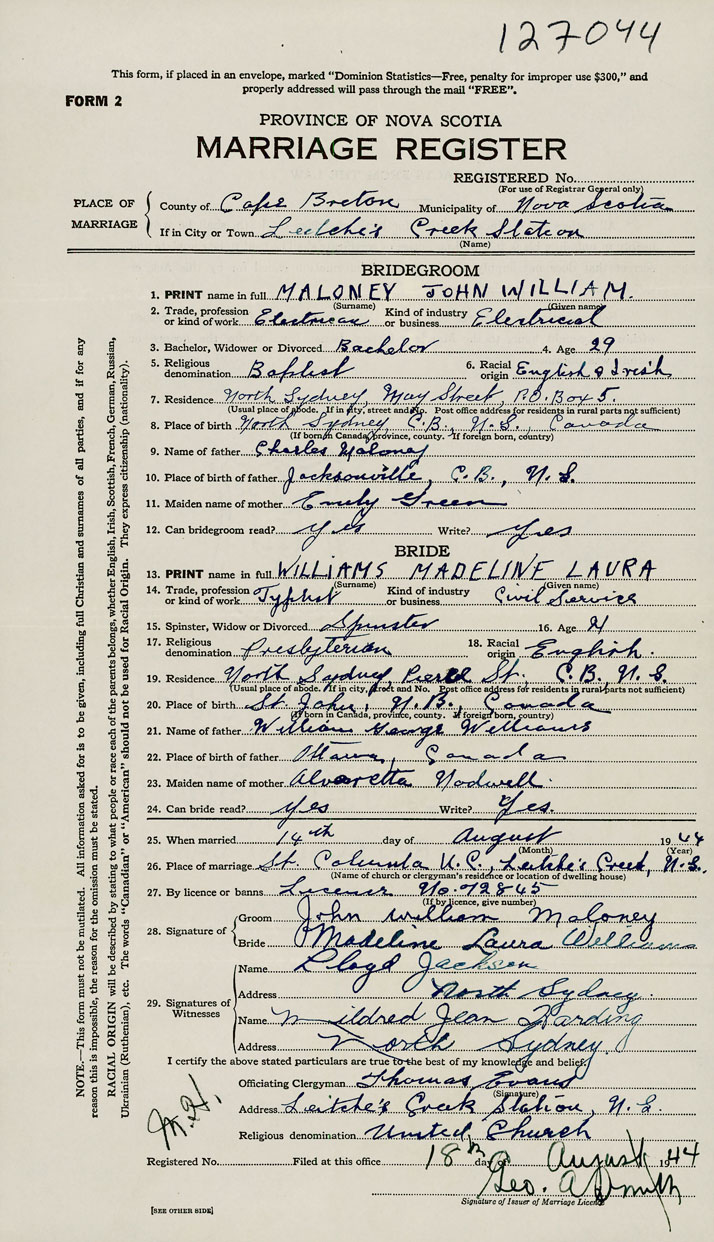 127044
This form, if placed in an envelope, marked "Dominion Statistics—Free, penalty for improper use $300," and
properly addressed will pass through the mail "FREE".
FORM 2
PROVINCE OF NOVA SCOTIA
MARRIAGE REGISTER
REGISTERED No.
(For use of Registrar General only)
PLACE OF MARRIAGE
County of Cape Breton Municipality of Nova Scotia
If in City or Town Leitche's Creek Station
(Name)
BRIDEGROOM
1. PRINT name in full MALONEY JOHN WILLIAM.
(Surname) (Given name)
2. Trade, profession or kind of work Electrician Kind of industry or business Electrical
3. Bachelor, Widower or Divorced Bachelor 4. Age 29
5. Religious denomination Baptist 6. Racial origin English & Irish
7. Residence North Sydney, May Street, P.O. Box 5.
(Usual place of abode. If in city, street and No. Post office address for residents in rural parts not sufficient)
8. Place of birth North Sydney C.B., N.S., Canada
(If born in Canada, province, county. If foreign born, country)
9. Name of father Charles Maloney
10. Place of birth of father Jacksonville, C.B., N.S.
11. Maiden name of mother Emily Green
12. Can bridegroom read? yes Write? yes
BRIDE
13. PRINT name in full WILLIAMS MADELINE LAURA
(Surname) (Given name)
14. Trade, profession or kind of work Typist Kind of industry or business Civil Service
15. Spinster, Widow or Divorced Spinster 16. Age
17. Religious denomination Presbyterian 18. Racial origin English.
19. Residence North Sydney Pierce St. C.B. N.S.
(Usual place of abode. If in city, street and No. Post office address for residents in rural parts not sufficient)
20. Place of birth St. John, N.B., Canada
(If born in Canada, province, county. If foreign born, country)
21. Name of father William George Williams
22. Place of birth of father Ottawa, Canada
23. Maiden name of mother Alvaretta Nodwell.
24. Can bride read? yes Write? Yes.
25. When married 14th day of August 1944
(Month) (Year)
26. Place of marriage St. Columba U.C., Leitche's Creek, N.S.
(Name of church or clergyman's residence or location of dwelling house)
27. By licence or banns License No. 72845
(If by licence, give number)
28. Signature of
Groom John William Maloney
Bride Madeline Laura Williams
29. Signatures of Witnesses
Name Lloyd Jackson
Address North Sydney.
Name Mildred Jean Harding
Address North Sydney
I certify the above stated particulars are true to the best of my knowledge and belief,
Officiating Clergyman Thomas Evans
(Signature)
Address Leitche's Creek Station, N.S.
Religious denomination United Church
Registered No. Filed at this office 18th day of August 1944
Geo. A Smith
Signature of Issuer of Marriage Licence
[SEE OTHER SIDE]
NOTE.—This form must not be mutilated. All information asked for is to be given, including full Christian and surnames of all parties, and if for any
reason this is impossible, the reason for the omission must be stated.
RACIAL ORIGIN will be described by stating to what people or race each of the parents belongs, whether English, Irish, Scottish, French, German, Russian,
Ukrainian (Ruthenian), etc. The words "Canadian" or "American" should not be used for Racial Origin. They express citizenship (nationality).